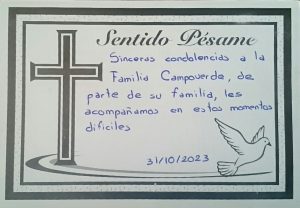 Sentido Pésame
Sinceras condolencias a la
Familia Campoverde, de
parte de su familia, les
acompañamos en estos momentos
dificiles
31/10/2023